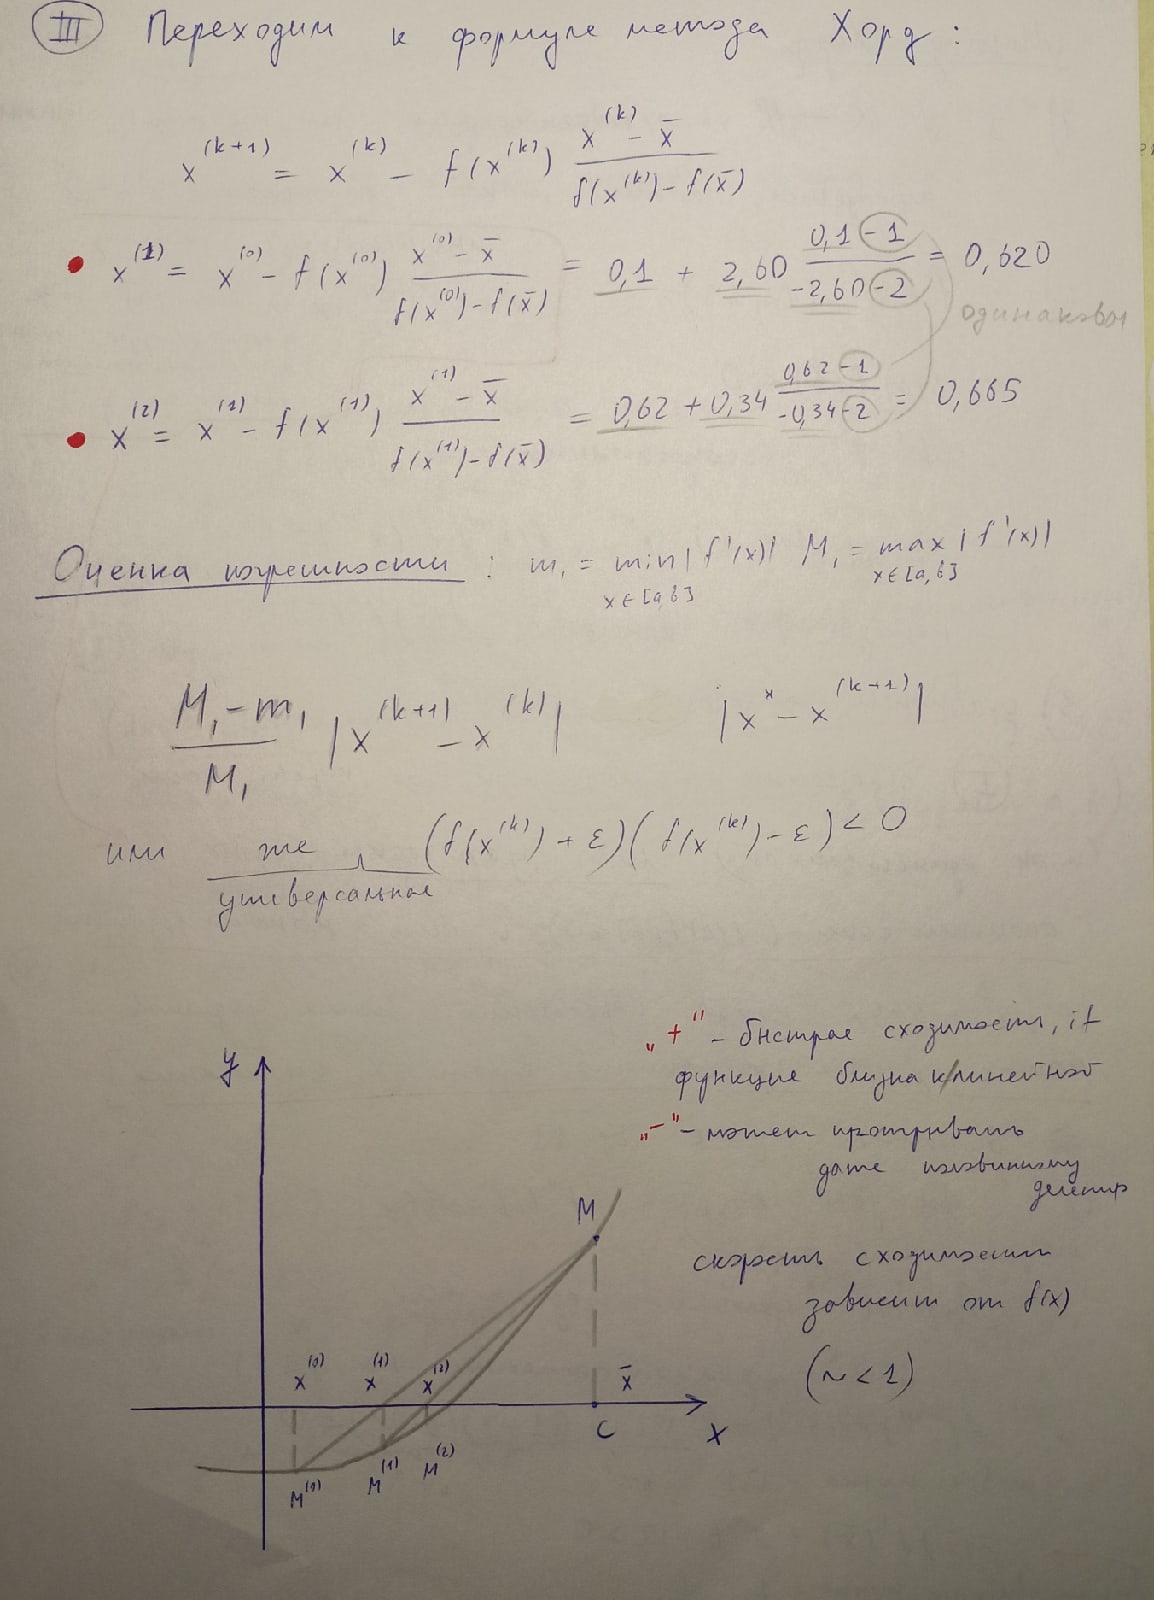 III Переходим к формуле метода Хорд:
x^(k+1) = x^(k) - f(x^(k)) (x^(k) - x̄)/(f(x^(k)) - f(x̄))
• x^(1) = x^(0) - f(x^(0)) (x^(0) - x̄)/(f(x^(0)) - f(x̄)) = 0,1 + 2,60 (0,1 - 1)/(-2,60 - 2) = 0,620
одинаковы
• x^(2) = x^(1) - f(x^(1)) (x^(1) - x̄)/(f(x^(1)) - f(x̄)) = 0,62 + 0,34 (0,62 - 1)/(-0,34 - 2) = 0,665
Оценка погрешности: m₁ = min|f'(x)| M₁ = max|f'(x)|
x∈[a,b] x∈[a,b]
(M₁ - m₁)/M₁ |x^(k+1) - x^(k)| |x* - x^(k+1)|
или же (f(x^(k)) + ε)(f(x^(k)) - ε) < 0
универсальное
„+" - быстрая сходимость, if
функция близка к линейной
„-" - может проигрывать
даже половинному
делению
скорость сходимости
зависит от f(x)
(~ < 1)
y
M
x^(0) x^(1) x^(2) x̄
C x
M^(0) M^(1) M^(2)